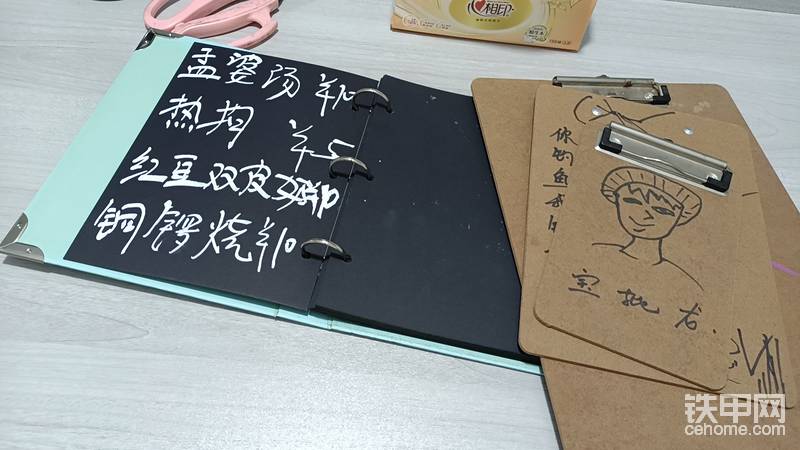 孟婆汤 ¥10
热狗 ¥5
红豆双皮奶 ¥10
铜锣烧 ¥10
心相印
你的鱼我
宝批龙.
铁甲网
cehome.com